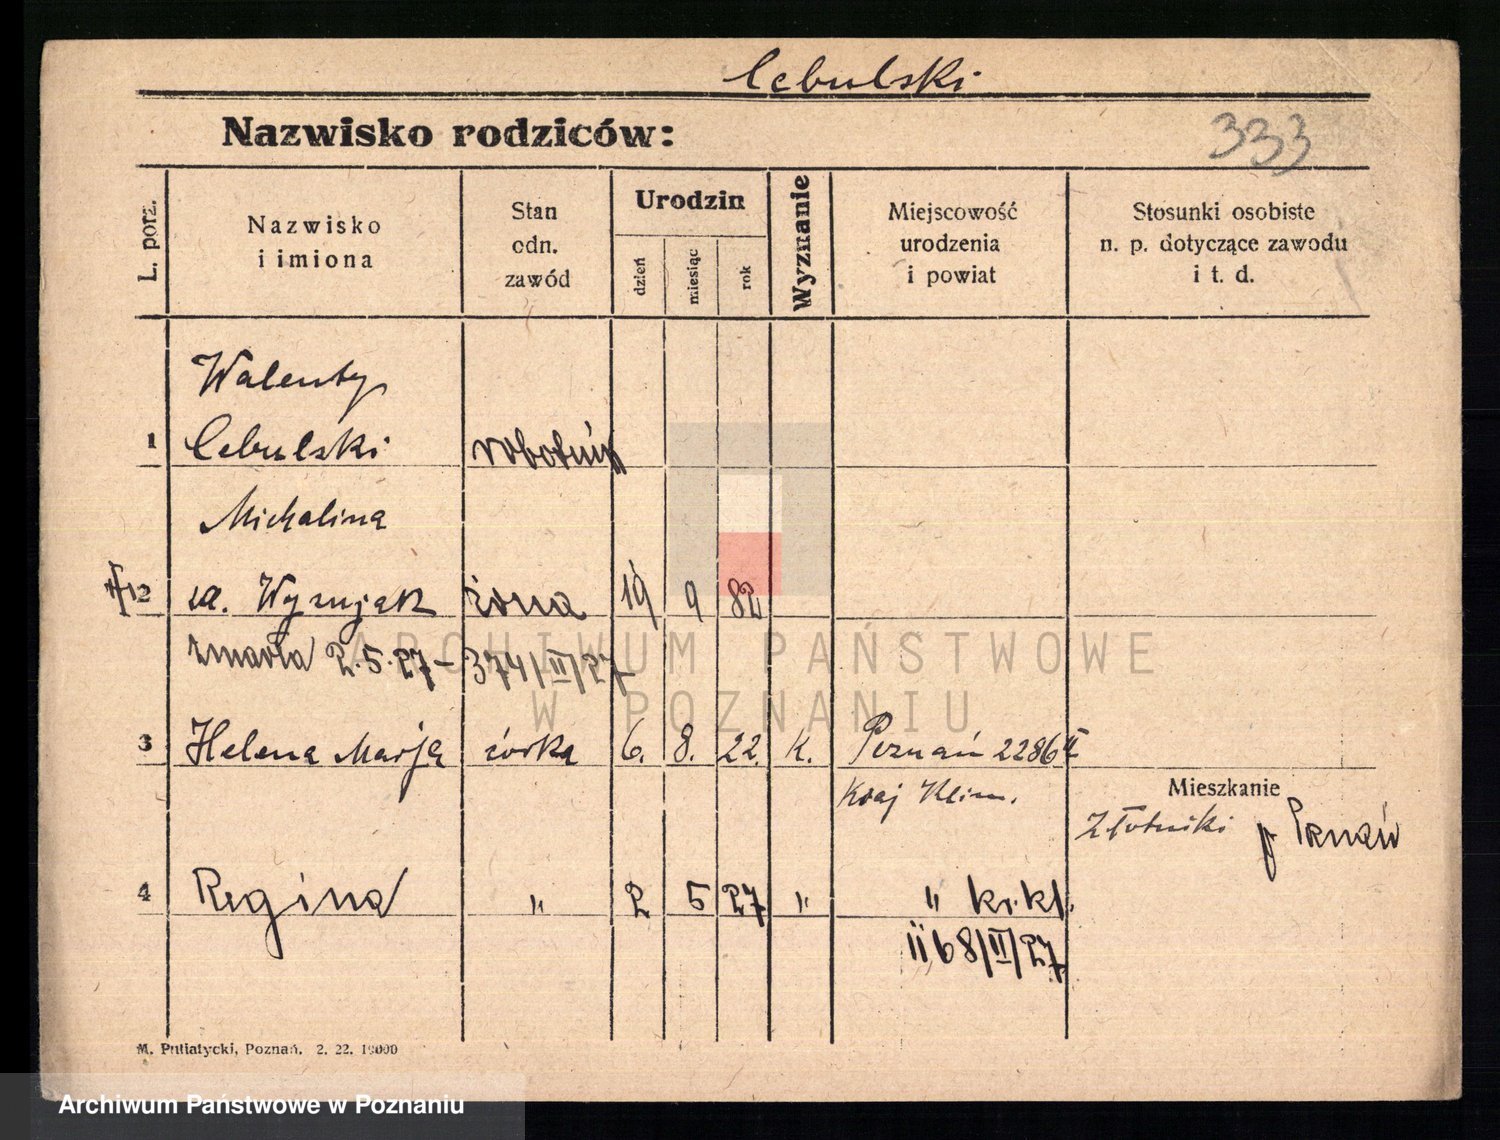 Cebulski
Nazwisko rodziców:
333
L. porz.
Nazwisko
i imiona
Stan
odn.
zawód
Urodzin
dzień
miesiąc
rok
Wyznanie
Miejscowość
urodzenia
i powiat
Stosunki osobiste
n. p. dotyczące zawodu
i t. d.
Walenty
1 Cebulski robotnik
Michalina
2 Wyrujak żona 19 9 82
zmarła 2.5.27 - 374/II/27
3 Helena Marja córka 6. 8. 22. K. Poznań 2286
Mieszkanie
Złotniki p Poznań
4 Regina " 2 5 27 " " kr. kl.
1168/II/27
M. Putiatycki, Poznań. 2. 22. 19000
ARCHIWUM PAŃSTWOWE
W POZNANIU
Archiwum Państwowe w Poznaniu